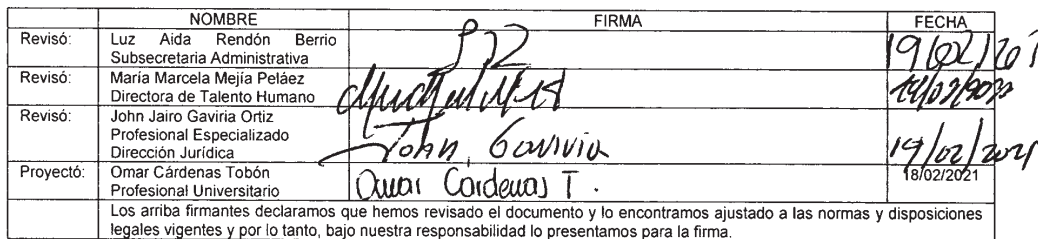 NOMBRE FIRMA FECHA
Revisó: Luz Aida Rendón Berrio
Subsecretaria Administrativa
Revisó: María Marcela Mejía Peláez
Directora de Talento Humano
Revisó: John Jairo Gaviria Ortiz
Profesional Especializado
Dirección Jurídica
John Gaviria
19/02/2021
Proyectó: Omar Cárdenas Tobón
Profesional Universitario
Omar Cardenas T.
18/02/2021
Los arriba firmantes declaramos que hemos revisado el documento y lo encontramos ajustado a las normas y disposiciones
legales vigentes y por lo tanto, bajo nuestra responsabilidad lo presentamos para la firma.